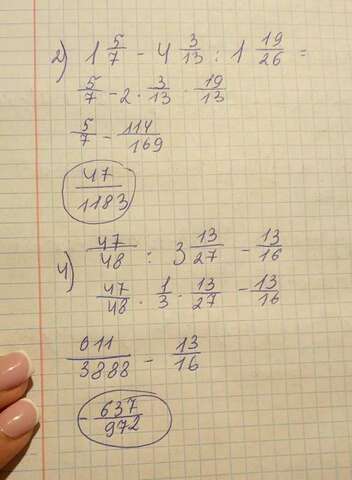 2) 1 5/7 - 4 3/13 : 1 19/26 =
5/7 - 2 · 3/13 · 19/13
5/7 - 114/169
47/1183
4) 47/48 : 3 13/27 - 13/16
47/48 · 1/3 · 13/27 - 13/16
611/3888 - 13/16
- 637/972